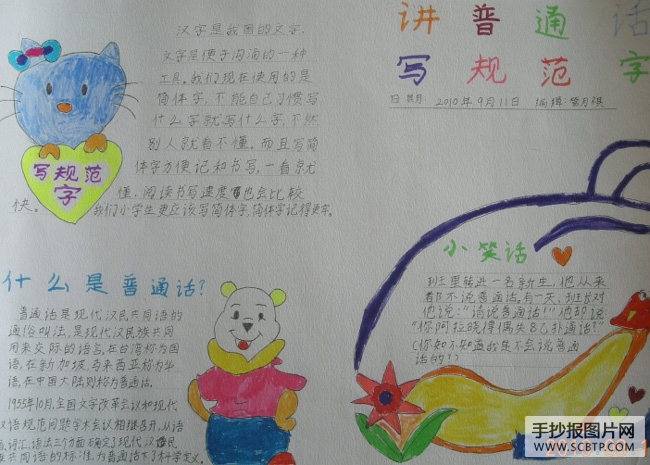 讲普通话
写规范字
日期: 2010年9月11日 编辑:
汉字是我国的文字,
文字是便于沟通的一种
工具。我们现在使用的是
简体字,不能自己习惯写
什么字就写什么字,不然
别人就看不懂。而且写简
体字方便记和书写,一看就
懂。阅读书写速度也会比较
快。我们小学生更应该写简体字,简体字记得更牢。
写规范
字
什么是普通话?
普通话是现代汉民共同语的
通俗叫法,是现代汉民族共同
用来交际的语言,在台湾称为国
语,在新加坡、马来西亚称为华
语,在中国大陆则称为普通话。
1955年10月,全国文字改革会议和现代
汉语规范问题学术会议相继召开,从语
音,词汇,语法三个方面确定了现代汉民
族共同语的标准,为普通话下了科学定义。
小笑话
班里转进一名新生,他从来
都不说普通话。有一天,班长对
他说:“请说普通话!”他却说:
“你阿拉晓得偶失8乙扑通话!”
(你知不知道我是不会说普通
话的!)
手抄报图片网
WWW.SCBTP.COM